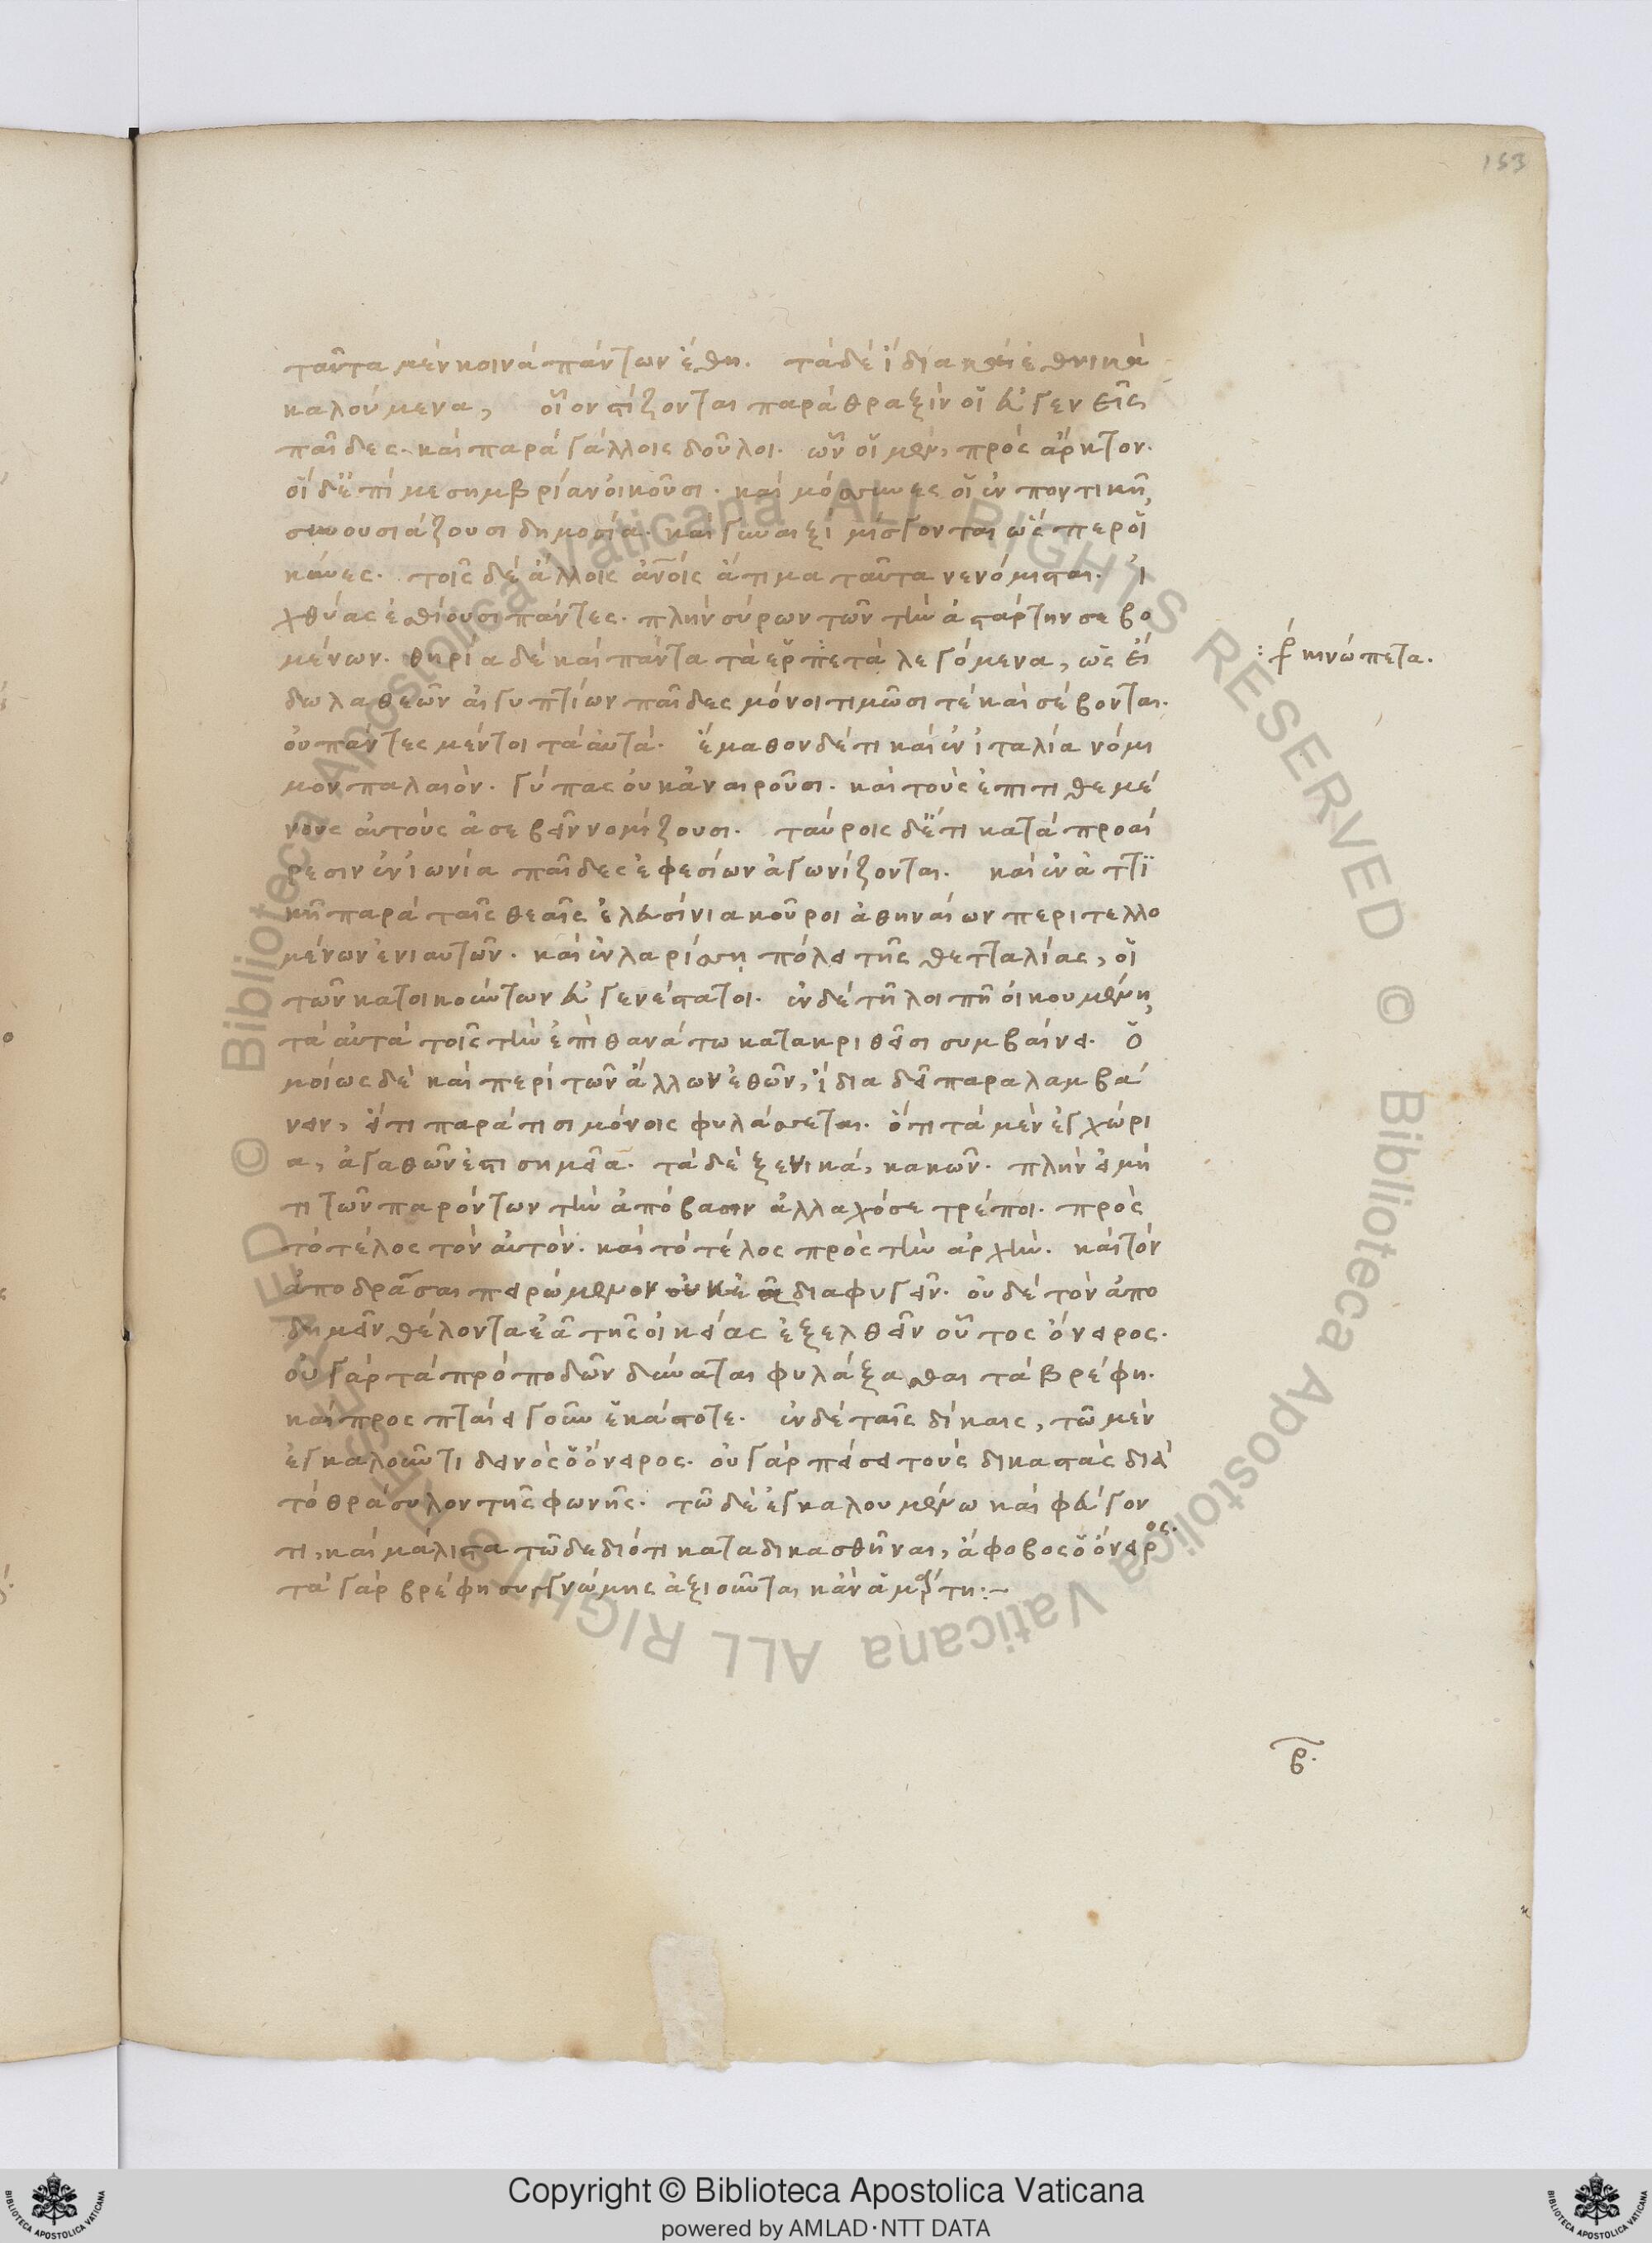 153
ταῦτα μὲν κοινὰ πάντων ἔθη. τὰ δὲ ἴδια καὶ ἐθνικὰ
καλούμενα, οἷον στίζονται παρὰ θραξὶν οἱ εὐγενεῖς
παῖδες. καὶ παρὰ γάλλοις δοῦλοι. ὧν οἱ μὲν, πρὸς ἄρκτον.
οἱ δὲ ἐπὶ μεσημβρίαν οἰκοῦσι. καὶ μόσσυνες οἱ ἐν ποντικῆ,
συνουσιάζουσι δημοσία. καὶ γυναιξὶ μίσγονται ὥσπερ οἱ
κύνες. τοῖς δὲ ἄλλοις ἀνοῖς ἄτιμα ταῦτα νενόμισται. ἰ
χθύας ἐσθίουσι πάντες. πλὴν σύρων τῶν τὴν ἀστάρτην σεβο
μένων. θηρία δὲ καὶ πάντα τὰ ἑρπετὰ λεγόμενα, ὡς εἴ
δωλα θεῶν αἰγυπτίων παῖδες μόνοι τιμῶσι τὲ καὶ σέβονται.
οὐ πάντες μέντοι τὰ αὐτά. ἔμαθον δέ τι καὶ ἐν ἰταλία νόμι
μον παλαιόν. γύπας οὐκ ἀναιροῦσι. καὶ τοὺς ἐπιτιθεμέ
νους αὐτοὺς ἀσεβεῖν νομίζουσι. ταύροις δὲ ἔτι κατὰ προαί
ρεσιν ἐν ἰωνία παῖδες ἐφεσίων ἀγωνίζονται. καὶ ἐν ἀττι
κῆ παρὰ ταῖς θεαῖς ἐλευσίνια κοῦροι ἀθηναίων περιτελλο
μένων ἐνιαυτῶν. καὶ ἐν λαρίσση πόλει τῆς θετταλίας, οἱ
τῶν κατοικούντων εὐγενέστατοι. ἐν δὲ τῆ λοιπῆ οἰκουμένη,
τὰ αὐτὰ τοῖς τὴν ἐπὶ θανάτω κατακριθεῖσι συμβαίνει. ὁ
μοίως δὲ καὶ περὶ τῶν ἄλλων ἐθῶν, ἴδια δεῖ παραλαμβά
νειν, εἴ τι παρά τισι μόνοις φυλάσσεται. ὅτι τὰ μὲν ἐγχώρι
α, ἀγαθῶν ἐστι σημεῖα. τὰ δὲ ξενικά, κακῶν. πλὴν εἰ μή
τι τῶν παρόντων τὴν ἀπόβασιν ἀλλαχόσε τρέποι. πρὸς
τὸ τέλος τὸν αὐτόν. καὶ τὸ τέλος πρὸς τὴν ἀρχήν. καὶ τὸν
ἀποδρᾶσαι πειρώμενον οὐκ ἐᾶ διαφυγεῖν. οὐδὲ τὸν ἀπο
δημεῖν θέλοντα ἐᾶ τῆς οἰκείας ἐξελθεῖν οὗτος ὄνειρος.
οὐ γὰρ τὰ πρὸ ποδῶν δύναται φυλάξασθαι τὰ βρέφη.
καὶ προσπταίει γοῦν ἑκάστοτε. ἐν δὲ ταῖς δίκαις, τῶ μὲν
ἐγκαλοῦντι δεινὸς ὁ ὄνειρος. οὐ γὰρ πείσει τοὺς δικαστὰς διὰ
τὸ θραύλον τῆς φωνῆς. τῶ δὲ ἐγκαλουμένω καὶ φεύγον
τι, καὶ μάλιστα τῶ δεδιότι καταδικασθῆναι, ἄφοβος ὁ ὄνειρος.
τὰ γὰρ βρέφη συγγνώμης ἀξιοῦνται κἂν ἁμάρτη:~
: κινώπετα.
β.
Copyright © Biblioteca Apostolica Vaticana
powered by AMLAD·NTT DATA